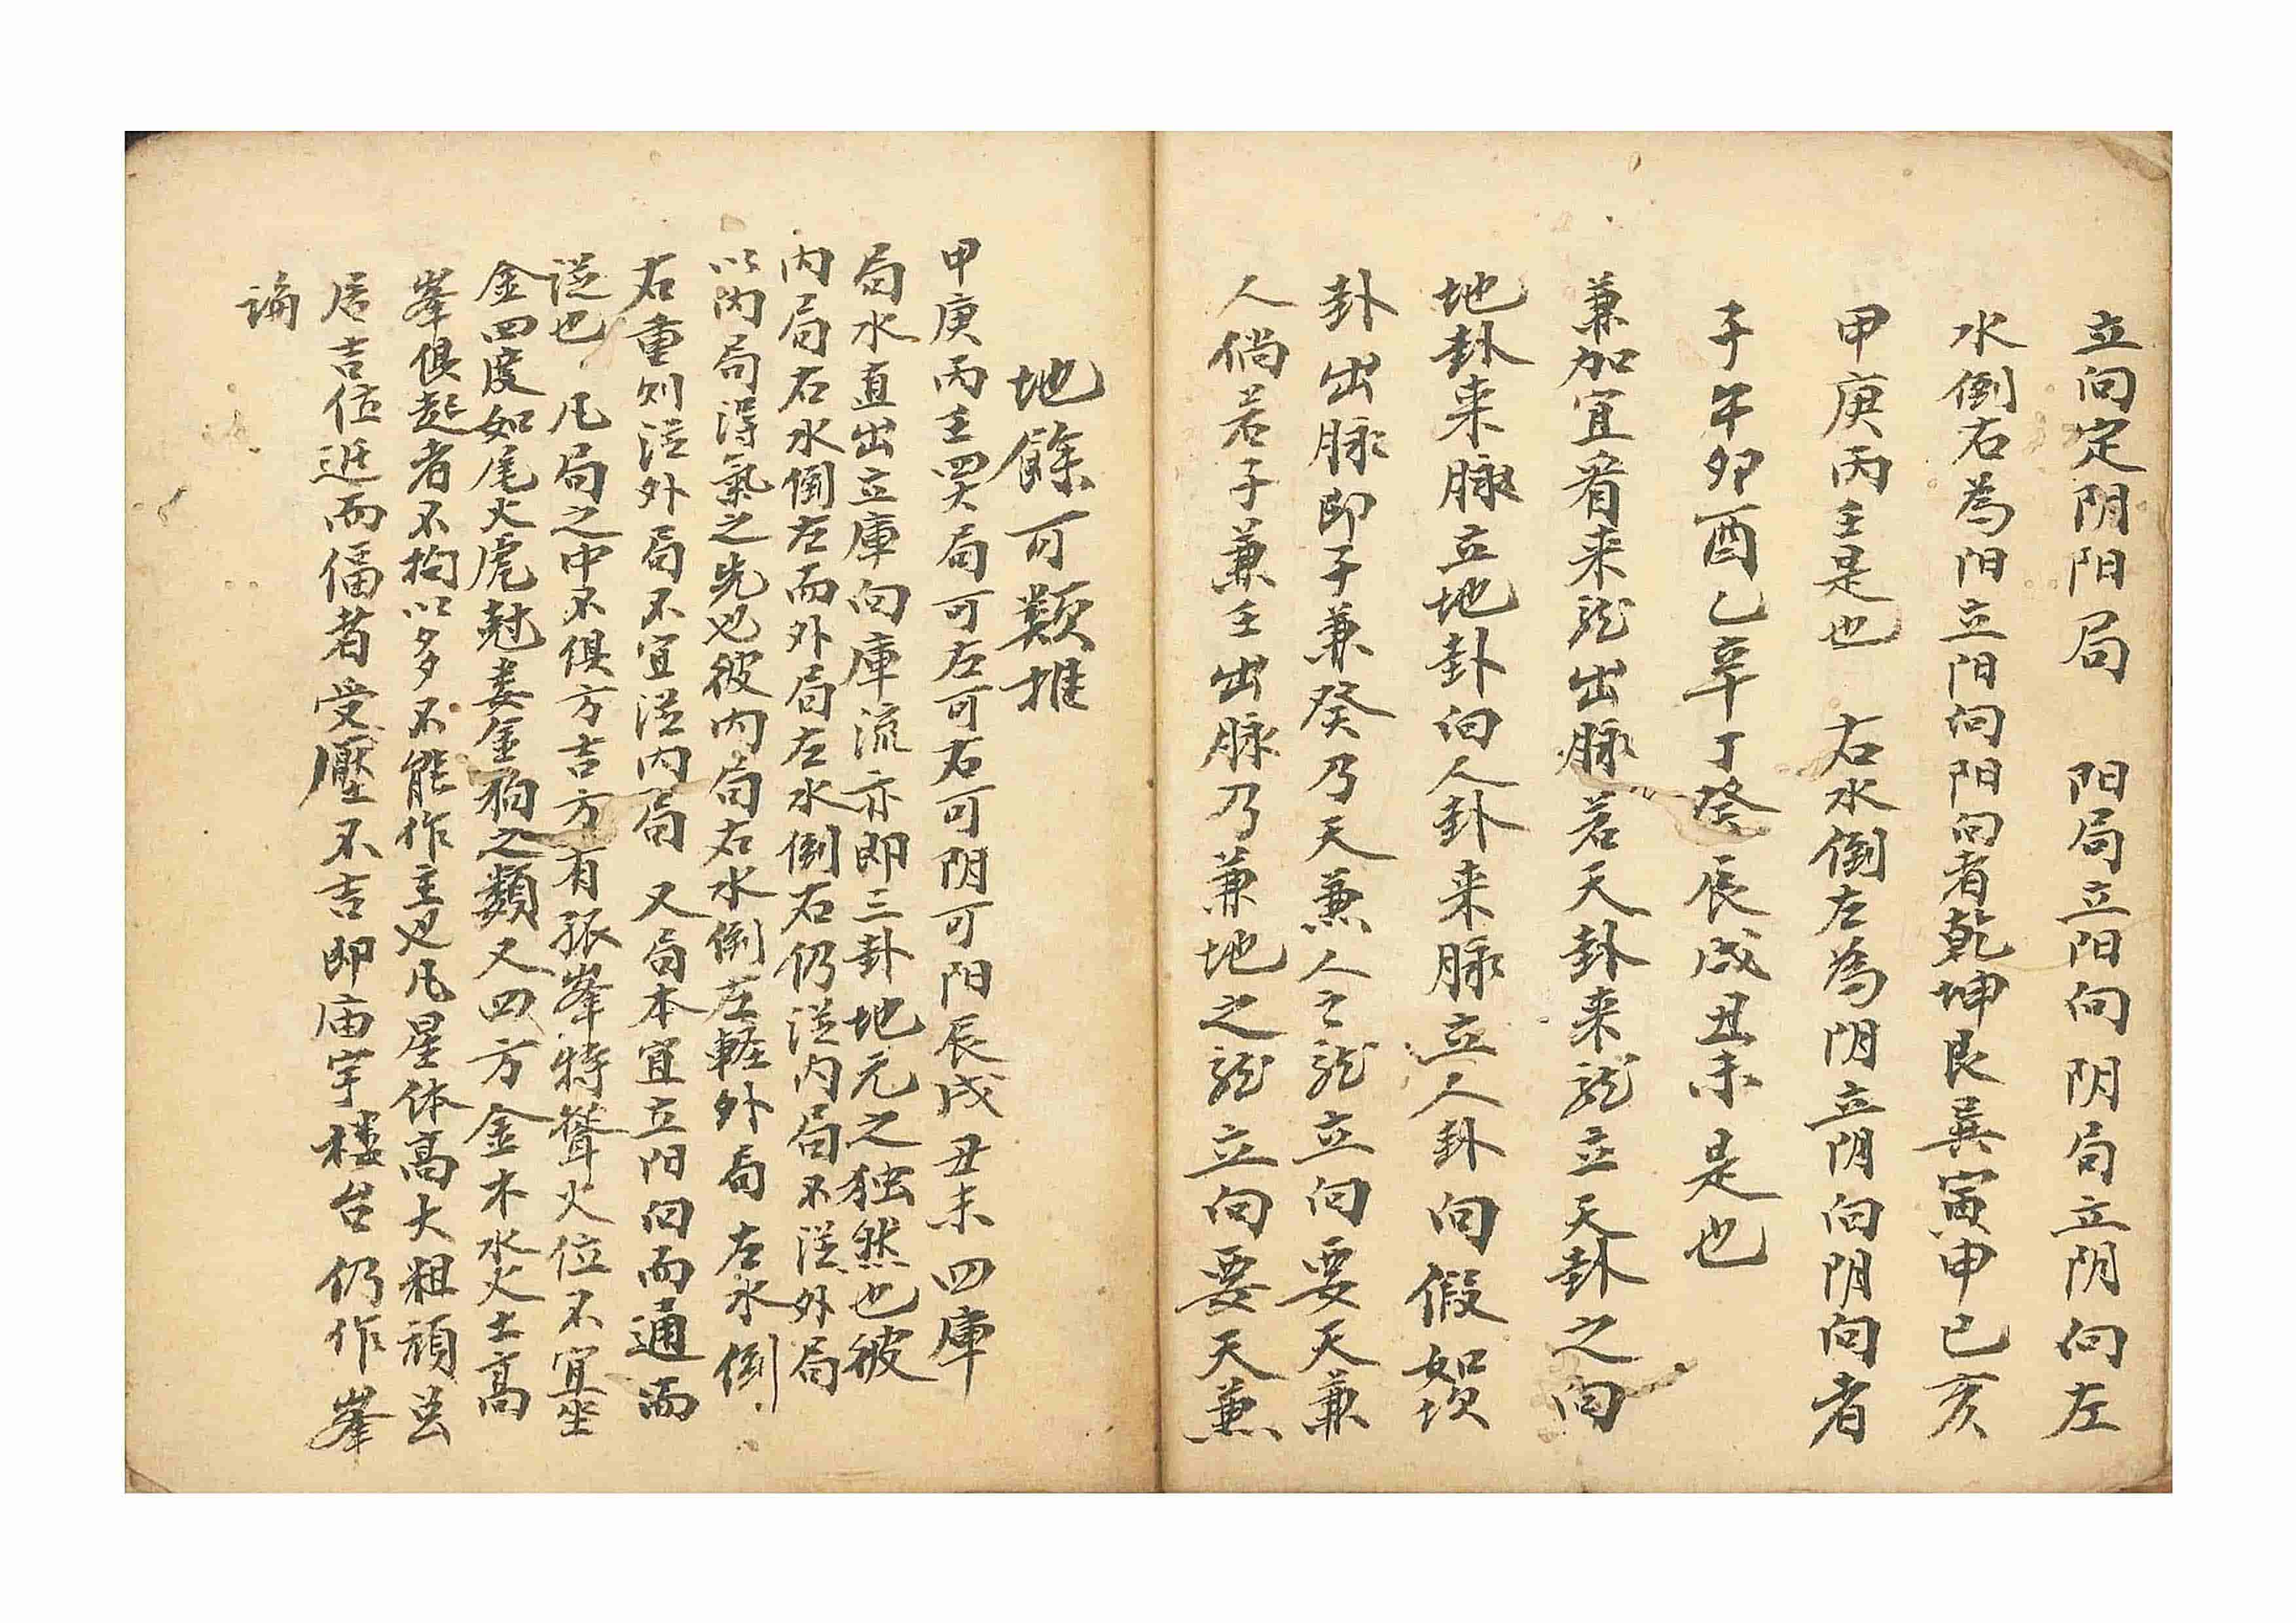 立向定阴阳局　阳局立阳向阴局立阴向左
水倒右為阳立阳向阳向者乾坤艮巽寅申巳亥
甲庚丙壬是也　右水倒左為阴立阴向阴向者
子午卯酉乙辛丁癸辰戌丑未是也
兼加宜看来龙出脉若天卦来龙立天卦之向
地卦来脉立地卦向人卦来脉立人卦向假如坎
卦出脉即子兼癸乃天兼人之龙立向要天兼
人倘若子兼壬出脉乃兼地之龙立向要天兼
地餘可類推
甲庚丙壬四大局可左可右可阴可阳辰戌丑未四庫
局水直出立庫向庫流亦即三卦地元之独然也彼
内局右水倒左而外局左水倒右仍從内局不從外局
以内局得氣之先也彼内局右水倒左軽外局左水倒
右重則從外局不宜從内局　又局本宜立阳向而通而
從也　凡局之中不俱方吉方有孤峯特聳火位不宜坐
金四度如尾火虎　婁金狗之類又四方金木水火土高
峯俱起者不拘以多不能作主也凡星体高大粗頑
居吉位近而偪者受壓不吉即庙宇楼台仍作峯
論